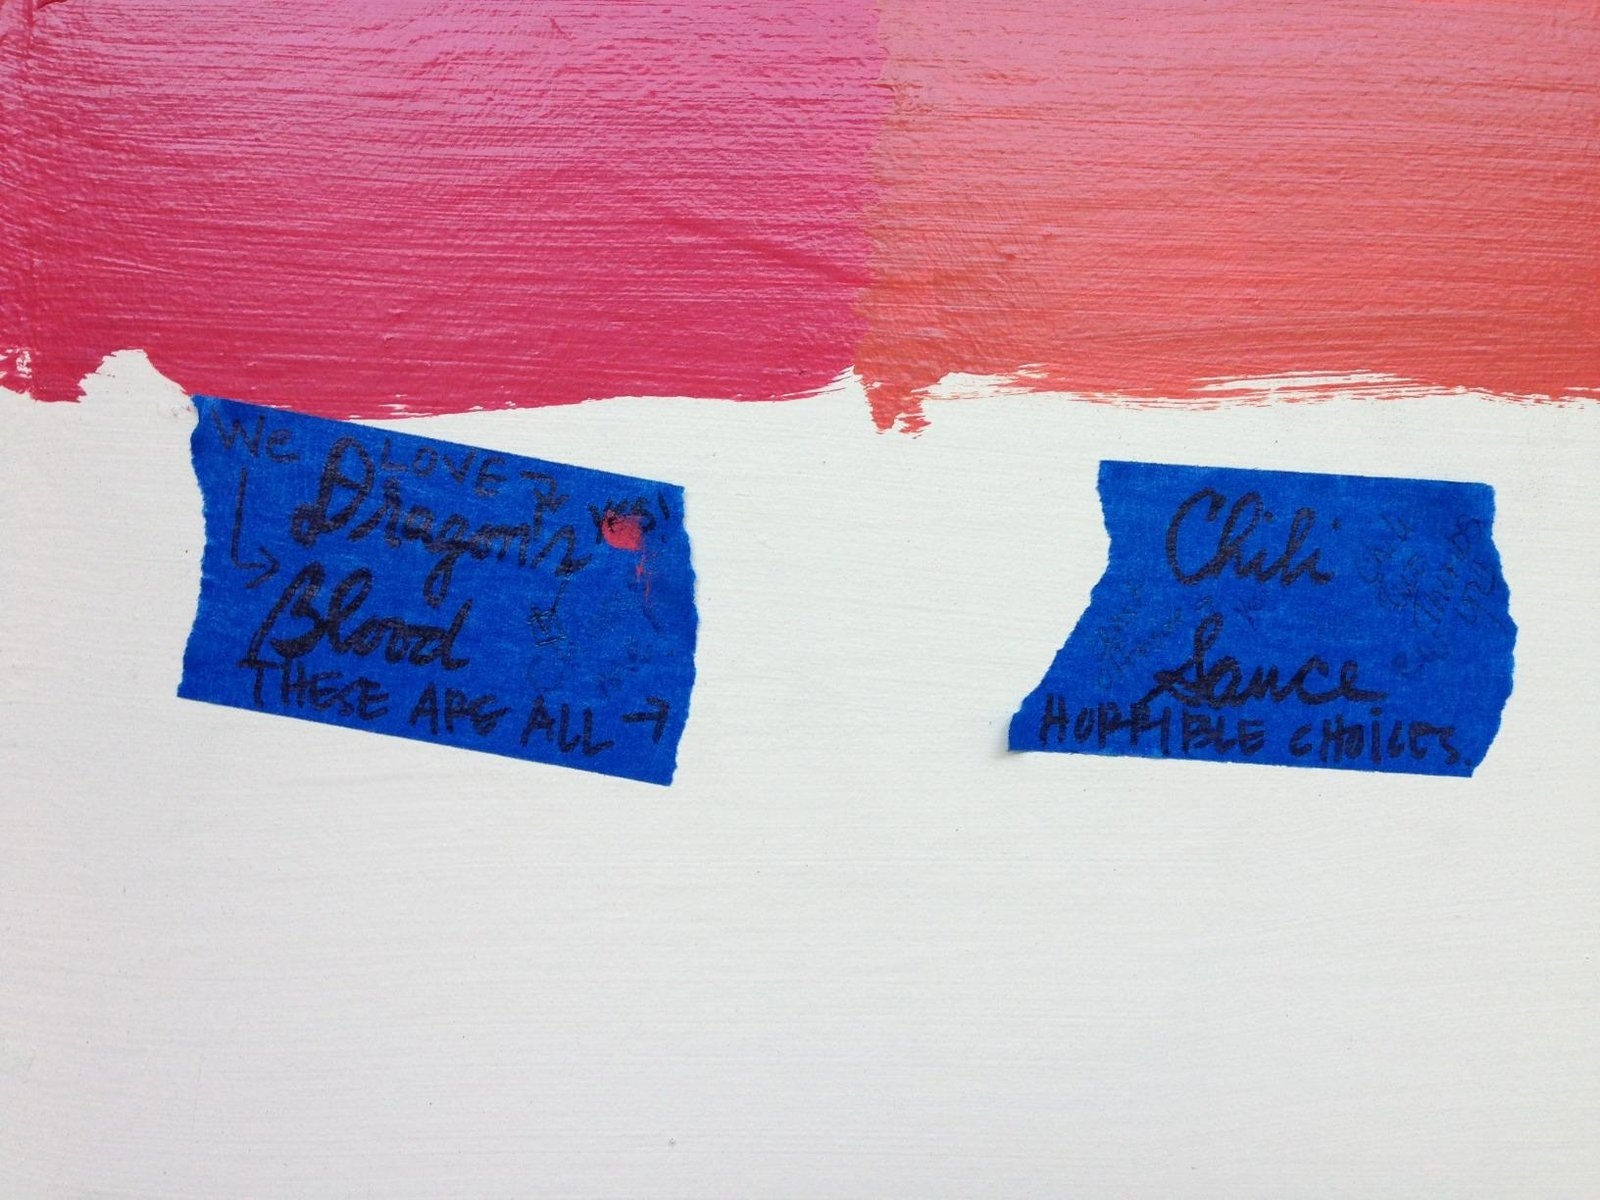 We LOVE →
Dragon's yes!
Blood
THESE ARE ALL →
Chili
Sauce
HORRIBLE CHOICES.